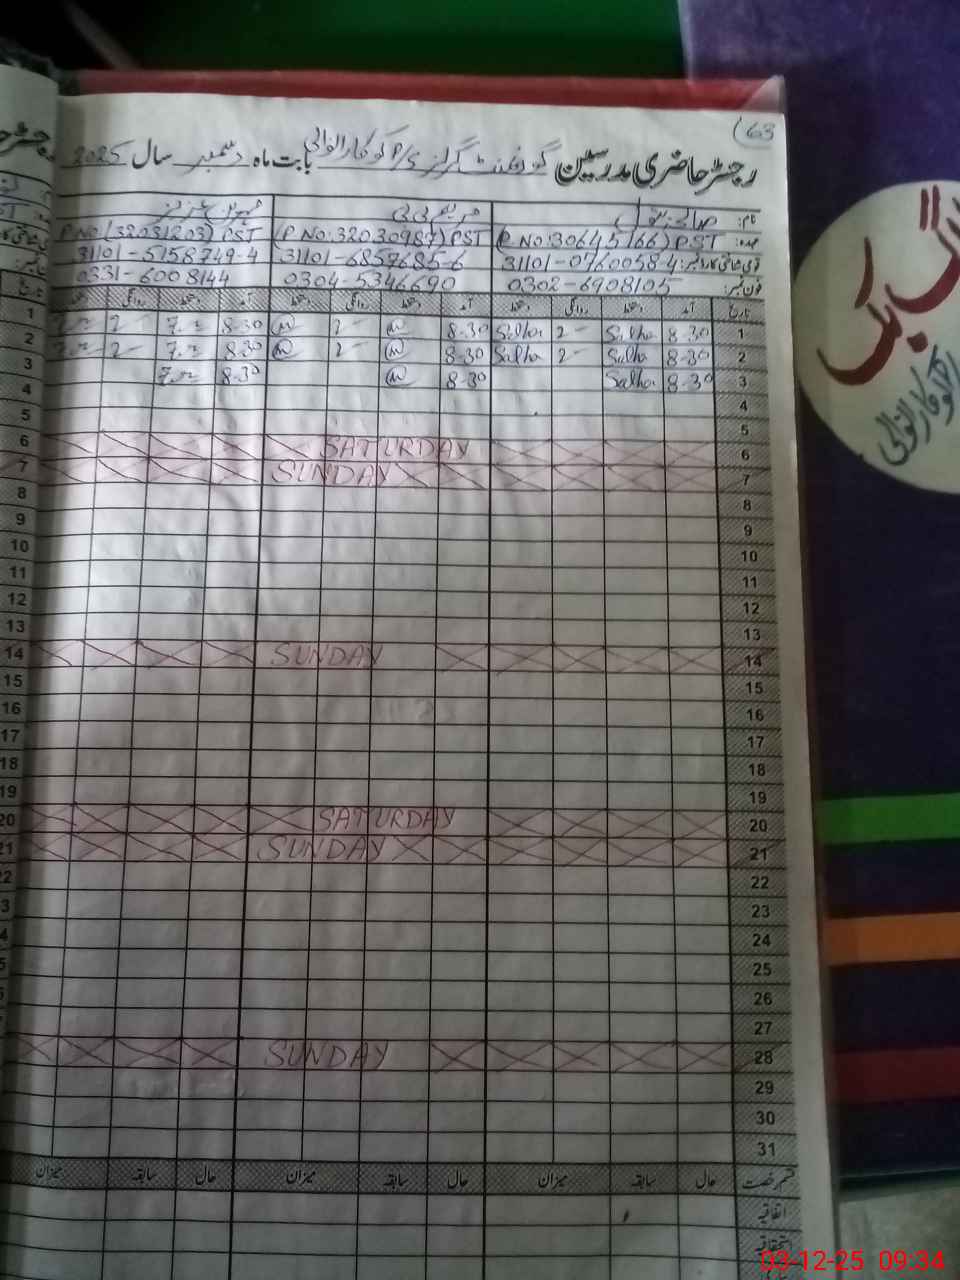 63
رجسٹر حاضری مدرسین گورنمنٹ گرلز P/S کوکارانوالی بابت ماہ دسمبر سال 2025
نام: صالحہ بتول مریم بی بی مہرین عزیز
عہدہ: (P.NO:30645166) PST (P.NO:32030987) PST P.NO:(32031203) PST
قومی شناختی کارڈ نمبر: 31101-0760058-4 31101-6857685-6 31101-5158749-4
فون نمبر: 0302-6908105 0304-5346690 0331-6008144
تاریخ آمد دستخط روانگی دستخط آمد دستخط روانگی دستخط آمد دستخط روانگی
1 8-30 Salha 2- Salha 8-30 2- 8-30 2- 1
2 8-30 Salha 2- Salha 8-30 2- 8-30 2- 2
3 8-30 Salha 8-30 8-30 3
4 4
5 5
6 SATURDAY 6
7 SUNDAY 7
8 8
9 9
10 10
11 11
12 12
13 13
14 SUNDAY 14
15 15
16 16
17 17
18 18
19 19
20 SATURDAY 20
21 SUNDAY 21
22
23
24
25
26
27
28 SUNDAY
29
30
31
قسم رخصت حال سابقہ میزان حال سابقہ میزان حال سابقہ میزان
اتفاقیہ
استحقاقیہ
بگ بک
P/S کوکارانوالی
03-12-25 09:34